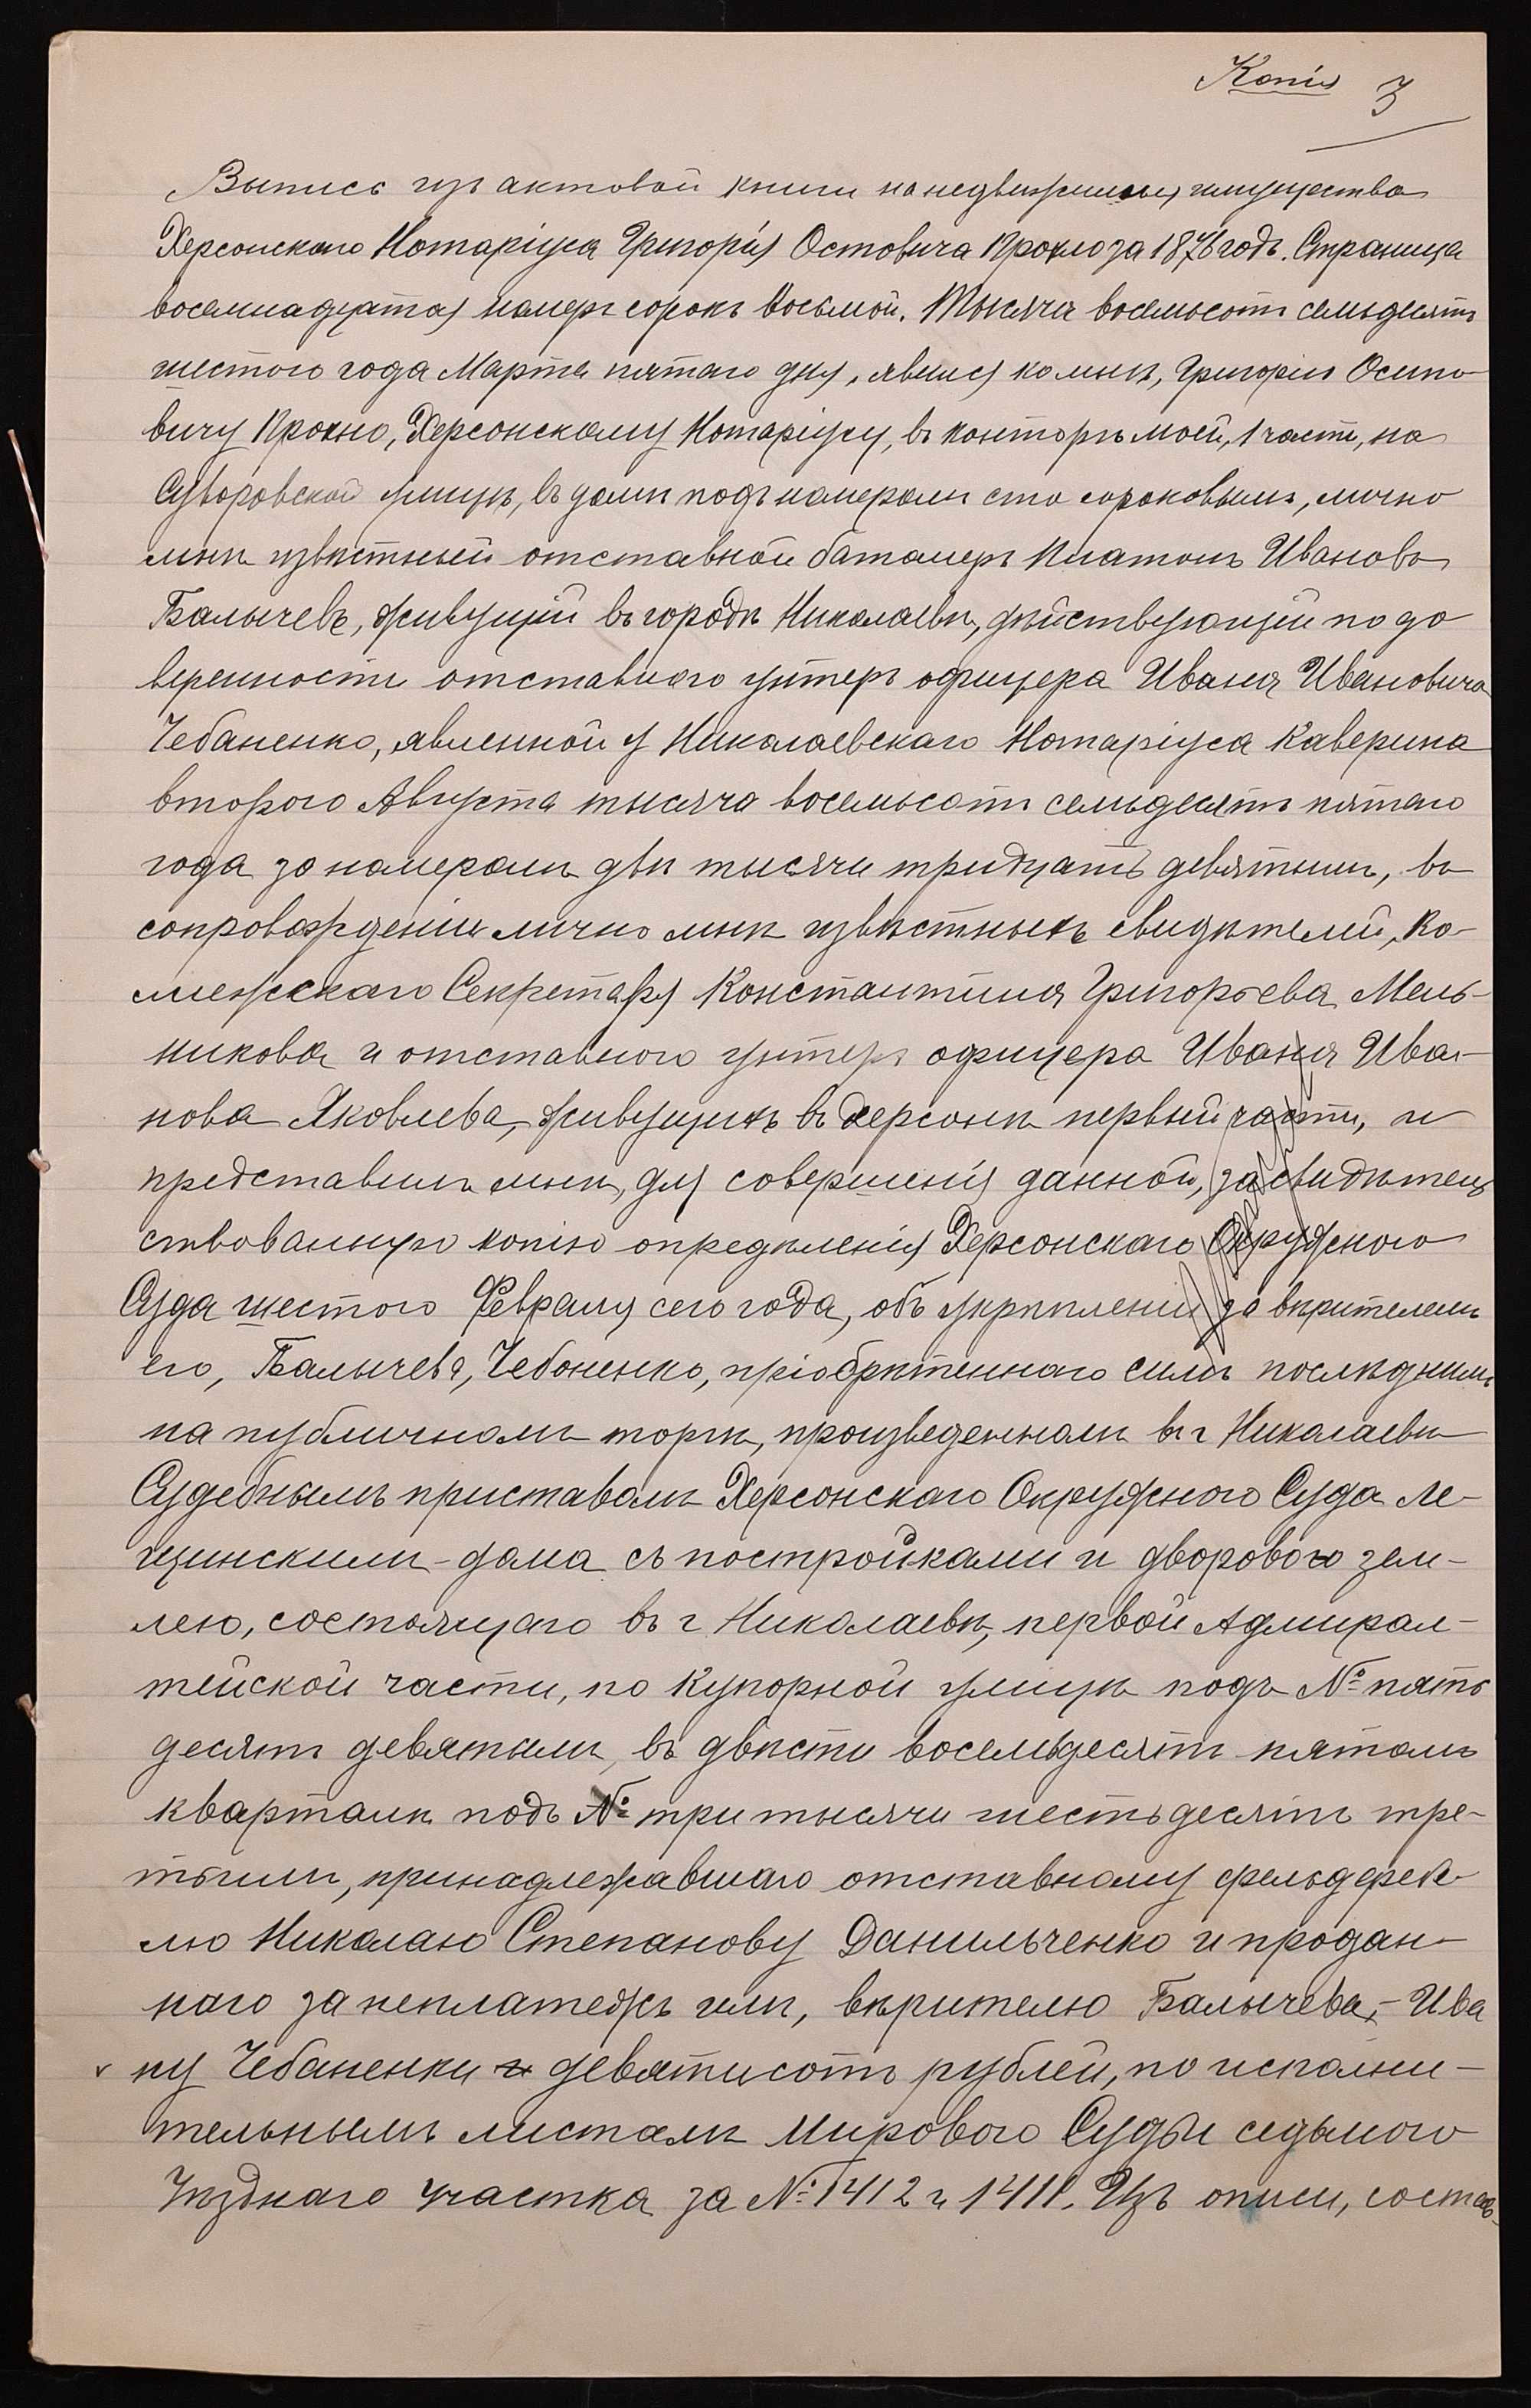 Копія 3
Выпись изъ актовой книги на недвижимыя имущества
Херсонскаго Нотаріуса Григорія Остовича Крокно за 1876 годъ. Страница
восемнадцатая номеръ сорокъ восьмой. Тысяча восемьсотъ семьдесятъ
шестого года Марта пятаго дня, явился ко мнѣ, Григорію Осипо-
вичу Крокно, Херсонскому Нотаріусу, въ контору мою, 1 части, на
Суворовской улицѣ, въ домѣ подъ номеромъ сто сороковымъ, лично
мнѣ извѣстный отставной баталеръ Платонъ Ивановъ
Балычевъ, живущій въ городѣ Николаевѣ, дѣйствующій по до
веренности отставнаго унтеръ офицера Ивана Ивановича
Чебаненко, явленной у Николаевскаго Нотаріуса Каверина
второго Августа тысяча восемьсотъ семьдесятъ пятаго
года за номеромъ двѣ тысячи тридцать девятымъ, въ
сопровожденіи лично мнѣ извѣстныхъ свидѣтелей, Ко-
лежскаго Секретаря Константина Григорьева Мель-
никова и отставного унтеръ офицера Ивана Ива-
нова Яковлева, живущихъ въ Херсонѣ первый части, и
представилъ мнѣ, для совершенія данной, засвидѣтель
ствованную копію опредѣленія Херсонскаго Окружного
Суда шестого Февраля сего года, объ укрѣпленіи за вѣрителемъ
его, Балычева, Чебоненко, пріобрѣтеннаго симъ послѣднимъ
на публичномъ торгѣ, произведенномъ въ г Николаевѣ
Судебнымъ приставомъ Херсонскаго Окружного Суда Ле-
щинскимъ - дома съ постройками и дворовою зем-
лею, состоящаго въ г Николаевѣ, первой Адмирал-
тейской части, по Купорной улицѣ подъ № пять
десятъ девятымъ, въ двѣсти восемьдесятъ пятомъ
кварталѣ подъ № три тысячи шестьдесятъ тре-
тьимъ, принадлежавшаго отставному фельдфебе-
лю Николаю Степанову Данильченко и продан-
наго за неплатежъ имъ, вѣрителю Балычева, - Ива
ну Чебаненки девятисотъ рублей, по исполни-
тельнымъ листамъ Мирового Судьи седьмого
Уѣзднаго участка за № 1412 и 1411. Изъ описи, состав-